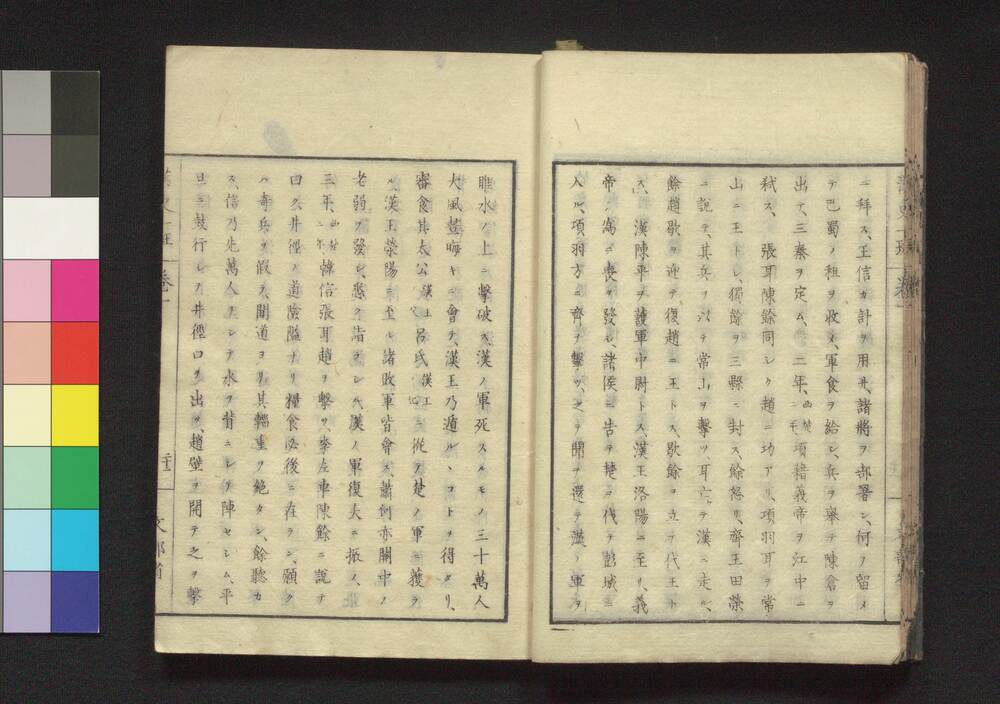 ニ拜ス、王信カ計ヲ用井、諸將ヲ部署シ、何ヲ留メ
テ巴蜀ノ租ヲ收メ、軍食ヲ給シ、兵ヲ擧テ陳倉ヲ
出テ、三秦ヲ定ム、二年、項籍義帝ヲ江中ニ
弑ス、張耳陳餘同シク趙ニ功アリ、項羽耳ヲ常
山ニ王トシ獨餘ヲ三縣ニ封ス、餘怒リ、齊王田榮
ニ說テ、其兵ヲ以テ常山ヲ擊ツ、耳亡テ漢ニ走ル、
餘趙歇ヲ迎テ復趙ニ王トス、歇餘ヲ立テ代王ト
ス、漢陳平ヲ護軍中尉トス、漢王洛陽ニ至リ、義
帝ノ爲ニ喪ヲ發シ、諸侯ニ告テ楚ヲ伐テ彭城ニ
入ル、項羽方ニ齊ヲ擊ツ、之ヲ聞テ還テ漢ノ軍ヲ
睢水ノ上ニ擊破ス、漢ノ軍死スルモノ三十萬人
大風晝晦キニ會テ、漢王乃遁ル、コトヲ得タリ、
審食其太公漢王呂氏漢王ニ從テ楚ノ軍ニ獲ラ
ル、漢王滎陽ニ至ル、諸敗軍皆會ス、蕭何亦關中ノ
老弱ヲ發シ、悉ク詣ラシム、漢ノ軍復大ニ振フ、
三年、韓信張耳趙ヲ擊ツ、李左車陳餘ニ說テ
曰ク、井徑ノ道險隘ナリ、糧食必後ニ在ラン、願ク
ハ奇兵ヲ假ス、間道ヨリ其輜重ヲ絶タン、餘聽カ
ス、信乃先萬人ヲシテ水ヲ背ニシテ陣セシム、平
旦ニ鼓行シテ井徑口ヲ出ツ、趙壁ヲ開テ之ヲ擊
卷一
文部省